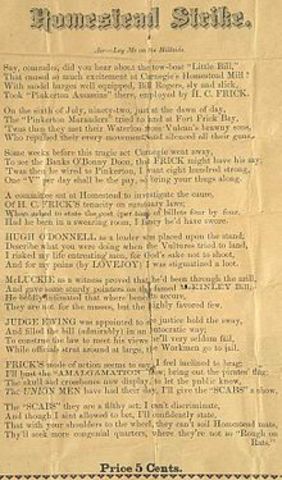 Homestead Strike.
Air—Lay Me on the Hillside.
Say, comrades, did you hear about the tow-boat "Little Bill,"
That caused so much excitement at Carnegie's Homestead Mill?
With model barges well equipped, Bill Rogers, sly and slick,
Took "Pinkerton Assassins" there, employed by H. C. FRICK.
On the sixth of July, ninety-two, just at the dawn of day,
The "Pinkerton Marauders" tried to land at Fort Frick Bay,
'Twas then they met their Waterloo from Vulcan's brawny sons,
Who repulsed their every movement and silenced all their guns.
Some weeks before this tragic act Carnegie went away,
To see the Banks O'Bonny Doon, that FRICK might have his say;
'Twas then he wired to Pinkerton, I want eight hundred strong,
One "V" per day shall be the pay, so bring your thugs along.
A committee sat at Homestead to investigate the cause,
Of H. C. FRICK'S tenacity on monetary laws;
When asked to state the cost per tong of billets four by four,
Had he been in a swearing room, I fancy he'd have swore.
HUGH O'DONNELL as a leader was placed upon the stand;
Describe what you were doing when the Vultures tried to land,
I risked my life entreating men, for God's sake not to shoot,
And for my pains (by LOVEJOY) I was stigmatized a loot.
McLUCKIE as a witness proved that he'd been through the mill,
And gave some sturdy pointers on the famed McKINLEY Bill;
He boldly intimated that where benefits accrue,
They are not for the masses, but the highly favored few.
JUDGE EWING was appointed to see justice hold the sway,
And filled the bill (admirably) in an autocratic way;
To construe the law to meet his views he'll very seldom fail,
While officials strut around at large, the Workmen go to jail.
FRICK'S mode of action seems to say I feel inclined to brag;
I'll bust the "AMALGAMATION" now, bring out the pirates' flag;
The skull and crossbones now display, to let the public know,
The UNION MEN have had their day, I'll give the "SCABS" a show.
The "SCABS" they are a filthy set; I can't discriminate,
And though I aint allowed to bet, I'll confidently state,
That with your shoulders to the wheel, they can't soil Homestead mats,
They'll seek more congenial quarters, where they're not so "Rough on
Rats."
Price 5 Cents.